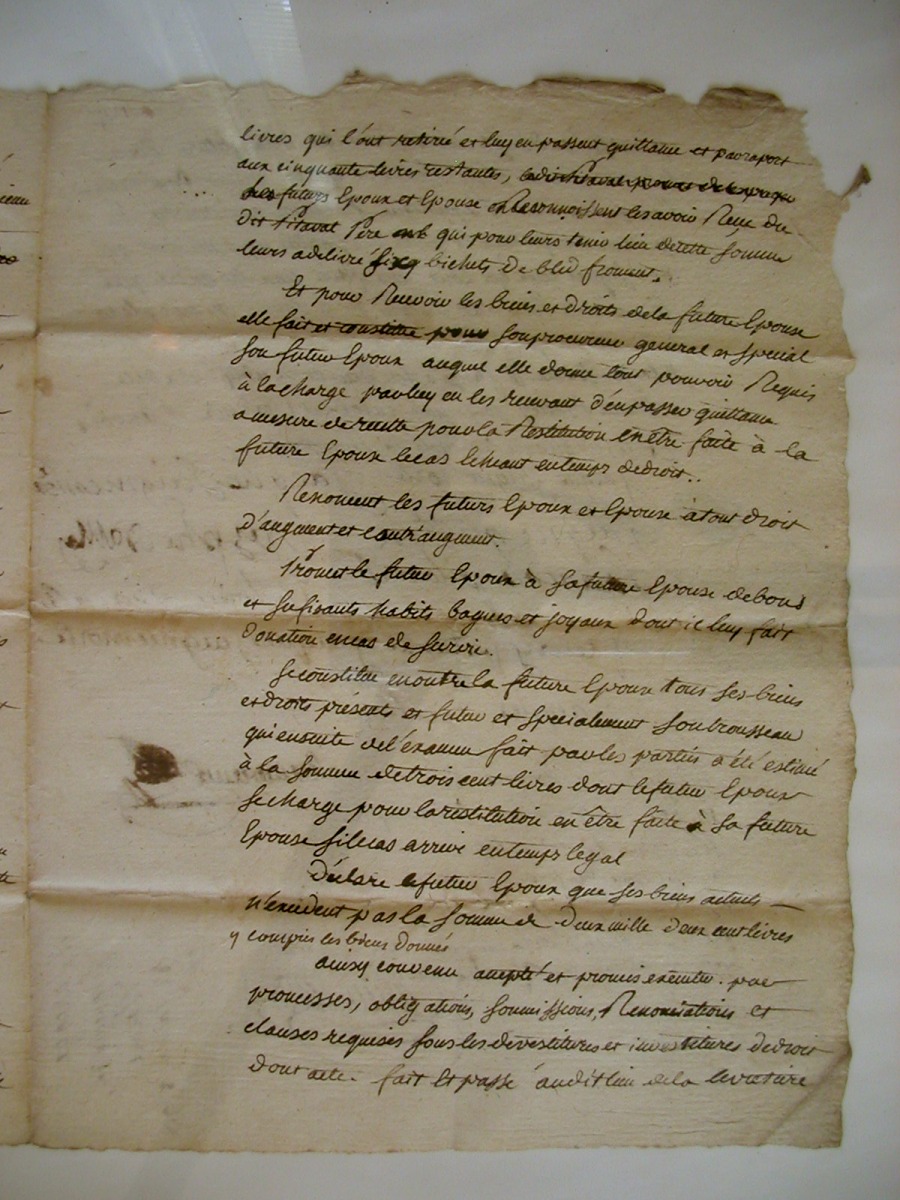 livres qui l'ont retiré et luy en passent quittance et par raport
aux cinquante livres restantes,
les futurs Epoux et Epouse Reconnoissent les avoir Reçu du
dit Pitaval Pere qui pour leurs tenir lieu de cette somme
leurs a delivré bichets de bled froment.
Et pour Recevoir les biens et droits de la future Epouse
elle fait et constitue pour son procureur general et special
son futur Epoux auquel elle donne tout pouvoir Requis
à la charge par luy en les recevant d'en passer quittance
a mesure de recette pour la Restitution en être faite à la
future Epouse le cas Echeant en temps de droit..
Renoncent les futurs Epoux et Epouse a tout droit
d'augment et contr'augment.
Promet le futur Epoux à sa future Epouse de bons
et sufisants habits bagues et joyaux dont il luy fait
Donation en cas de survie.
Se constitue en outre la future Epouse tous ses biens
et droits présents et futur et specialement son trousseau
qui ensuite de l'examen fait par les parties a été estimé
à la somme de trois cent livres dont le futur Epoux
se charge pour la restitution en être faite à sa future
Epouse si le cas arrive en temps legal
Déclare le futur Epoux que ses biens actuels
n'excedent pas la somme de deux mille deux cent livres
y compris les biens donnés
ainsy convenu accepté et promis executer par
promesses, obligations, soumissions, Renonciations et
clauses requises sous les devestitures et investitures de droit
dont acte. fait Et passé audit lieu de la